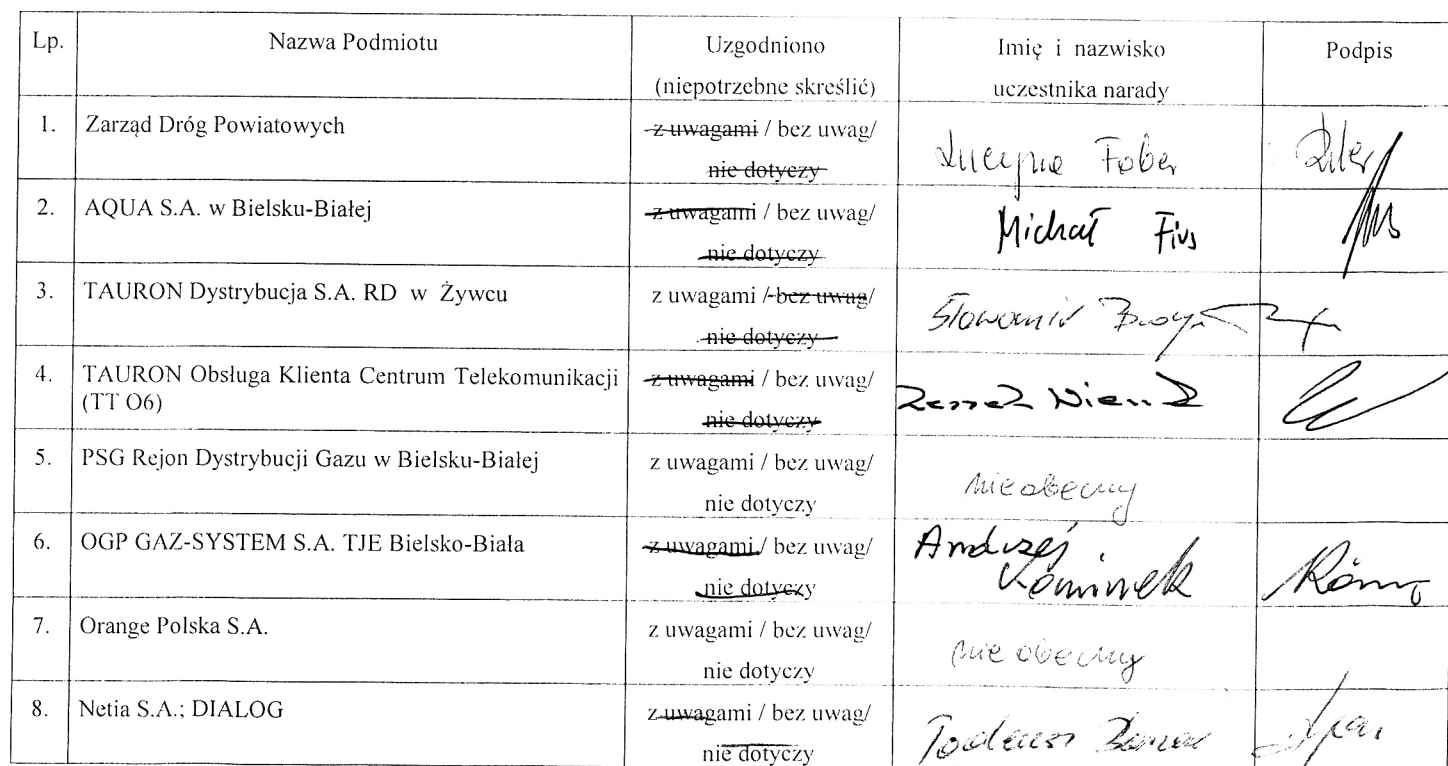 Lp. Nazwa Podmiotu Uzgodniono Imię i nazwisko Podpis
(niepotrzebne skreślić) uczestnika narady
1. Zarząd Dróg Powiatowych z uwagami / bez uwag/
nie dotyczy Lucyna Faber
2. AQUA S.A. w Bielsku-Białej z uwagami / bez uwag/
nie dotyczy Michał Fijs
3. TAURON Dystrybucja S.A. RD w Żywcu z uwagami / bez uwag/
nie dotyczy Sławomir
4. TAURON Obsługa Klienta Centrum Telekomunikacji z uwagami / bez uwag/
(TT O6) nie dotyczy
5. PSG Rejon Dystrybucji Gazu w Bielsku-Białej z uwagami / bez uwag/
nie dotyczy nieobecny
6. OGP GAZ-SYSTEM S.A. TJE Bielsko-Biała z uwagami / bez uwag/ Andrzej
nie dotyczy Kominek
7. Orange Polska S.A. z uwagami / bez uwag/
nie dotyczy nieobecny
8. Netia S.A.; DIALOG z uwagami / bez uwag/
nie dotyczy Tadeusz